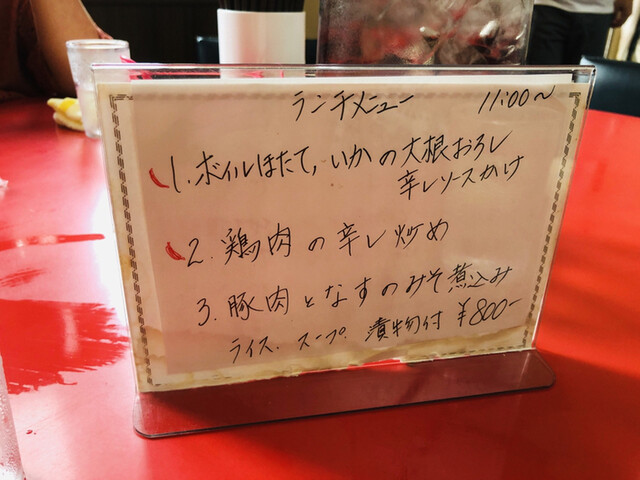 ランチメニュー 11:00〜
1. ボイルほたて, いかの大根おろし
辛しソースかけ
2. 鶏肉の辛し炒め
3. 豚肉となすのみそ煮込み
ライス. スープ. 漬物付 ¥800-